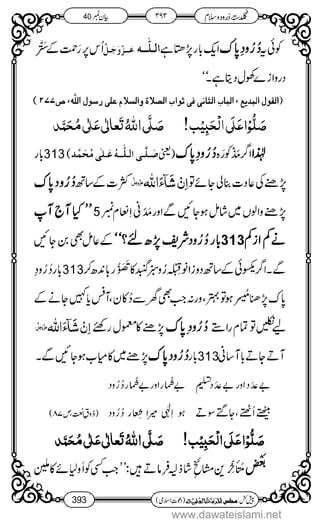 بیان نمبر 40
۳۹۳
گلدستۂ دُرود و سلام
کوئی یہ دُرُودِ پاک ایک بار پڑھتا ہے اللہ عَزَّوَجَلَّ اُس پر رَحمت کے ستّر
دروازے کھول دیتا ہے۔‘‘
(القول البدیع ، الباب الثانی فی ثواب الصلاۃ والسلام علی رسول اللہ، ص ۲۷۷)
صَلُّوْا عَلَی الْحَبِیْب! صَلَّی اللہُ تَعَالٰی عَلٰی مُحَمَّد
لہٰذا اگر مَذکور دُرُودِ پاک (یعنی صَلَّی اللہُ عَلٰی مُحَمَّد) 313 بار
پڑھنے کی عادت بنالی جائے تو اِنْ شَآءَ اللہ کثرت کے ساتھ دُرُودِ پاک
پڑھنے والوں میں شامل ہوجائیں گے اور مَدَنی انعام نمبر 5 ’’کیا آج آپ
نے کم از کم 313 بار دُرُود شریف پڑھ لئے؟‘‘ کے عامل بھی بن جائیں
گے۔ اگر یکسوئی کے ساتھ دو زانو قبلہ رُو سبز گنبد کا تَصَوُّر باندھ کر 313 بار دُرُودِ
پاک پڑھنا نصیب ہو تو زہے بہتر، ورنہ جب بھی گھر سے دُکان، آفس، یا کہیں جانے کے
لیے نکلیں تو تمام راستے دُرُودِ پاک پڑھنے کا معمول رکھئے اِنْ شَآءَ اللہ
آتے جاتے بآسانی 313 بار دُرُودِ پاک پڑھنے میں کامیاب ہوجائیں گے۔
بے عدد اور بے عدد تسلیم بے شمار اور بے شمار دُرُود
بیٹھتے اُٹھتے، جاگتے سوتے ہو الٰہی مِرا شِعار دُرُود (ذوقِ نعت، ص ۸۷)
صَلُّوْا عَلَی الْحَبِیْب! صَلَّی اللہُ تَعَالٰی عَلٰی مُحَمَّد
بَعْض مُتَأَخِّرِین مشائخِ شاذلیہ فرماتے ہیں: ’’جب کسی کو اَولیائے کاملین
393
www.dawateislami.net